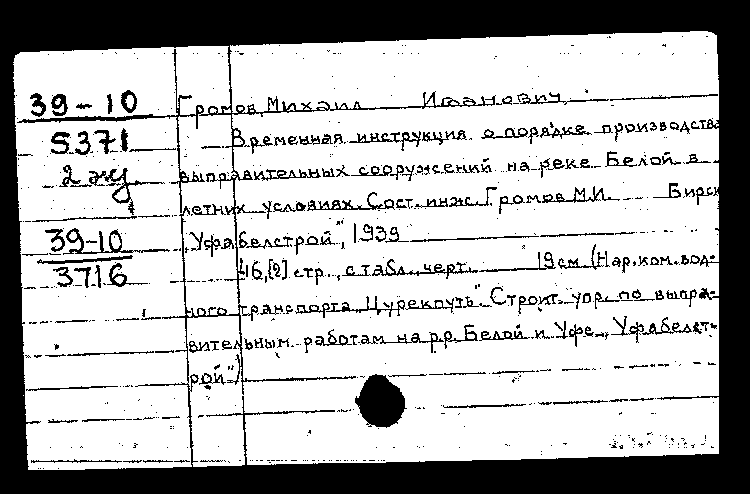 39-10 Громов, Михаил Иванович
5371 Временная инструкция о порядке производства
2 экз выправительных сооружений на реке Белой в
летних условиях. Сост. инж. Громов М.И. Бирск
39-10 "Уфабелстрой", 1939
3716 46,[2] стр., с табл., черт. 19 см (Нар. ком. вод-
ного транспорта "Цурекпуть". Строит. упр. по выпра-
вительным работам на рр. Белой и Уфе "Уфабелст-
рой")